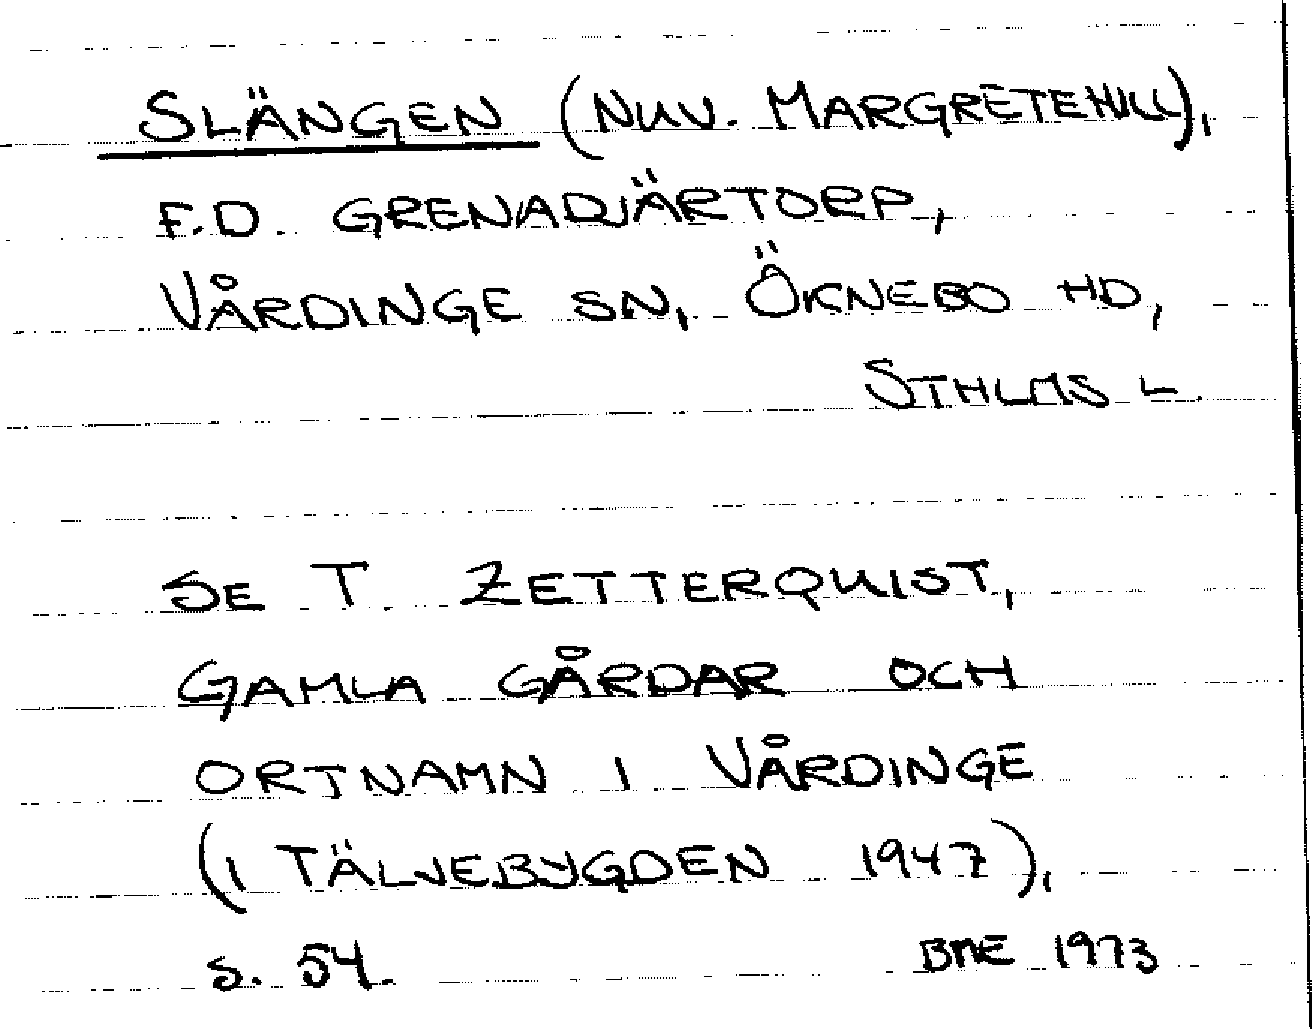 SLÄNGEN (NUV. MARGRETEHILL),
F.D. GRENADJÄRTORP,
VÅRDINGE SN, ÖKNEBO HD,
STHLMS L.
SE T. ZETTERQUIST,
GAMLA GÅRDAR OCH
ORTNAMN I VÅRDINGE
(I TÄLJEBYGDEN 1947),
S. 54. BME 1973